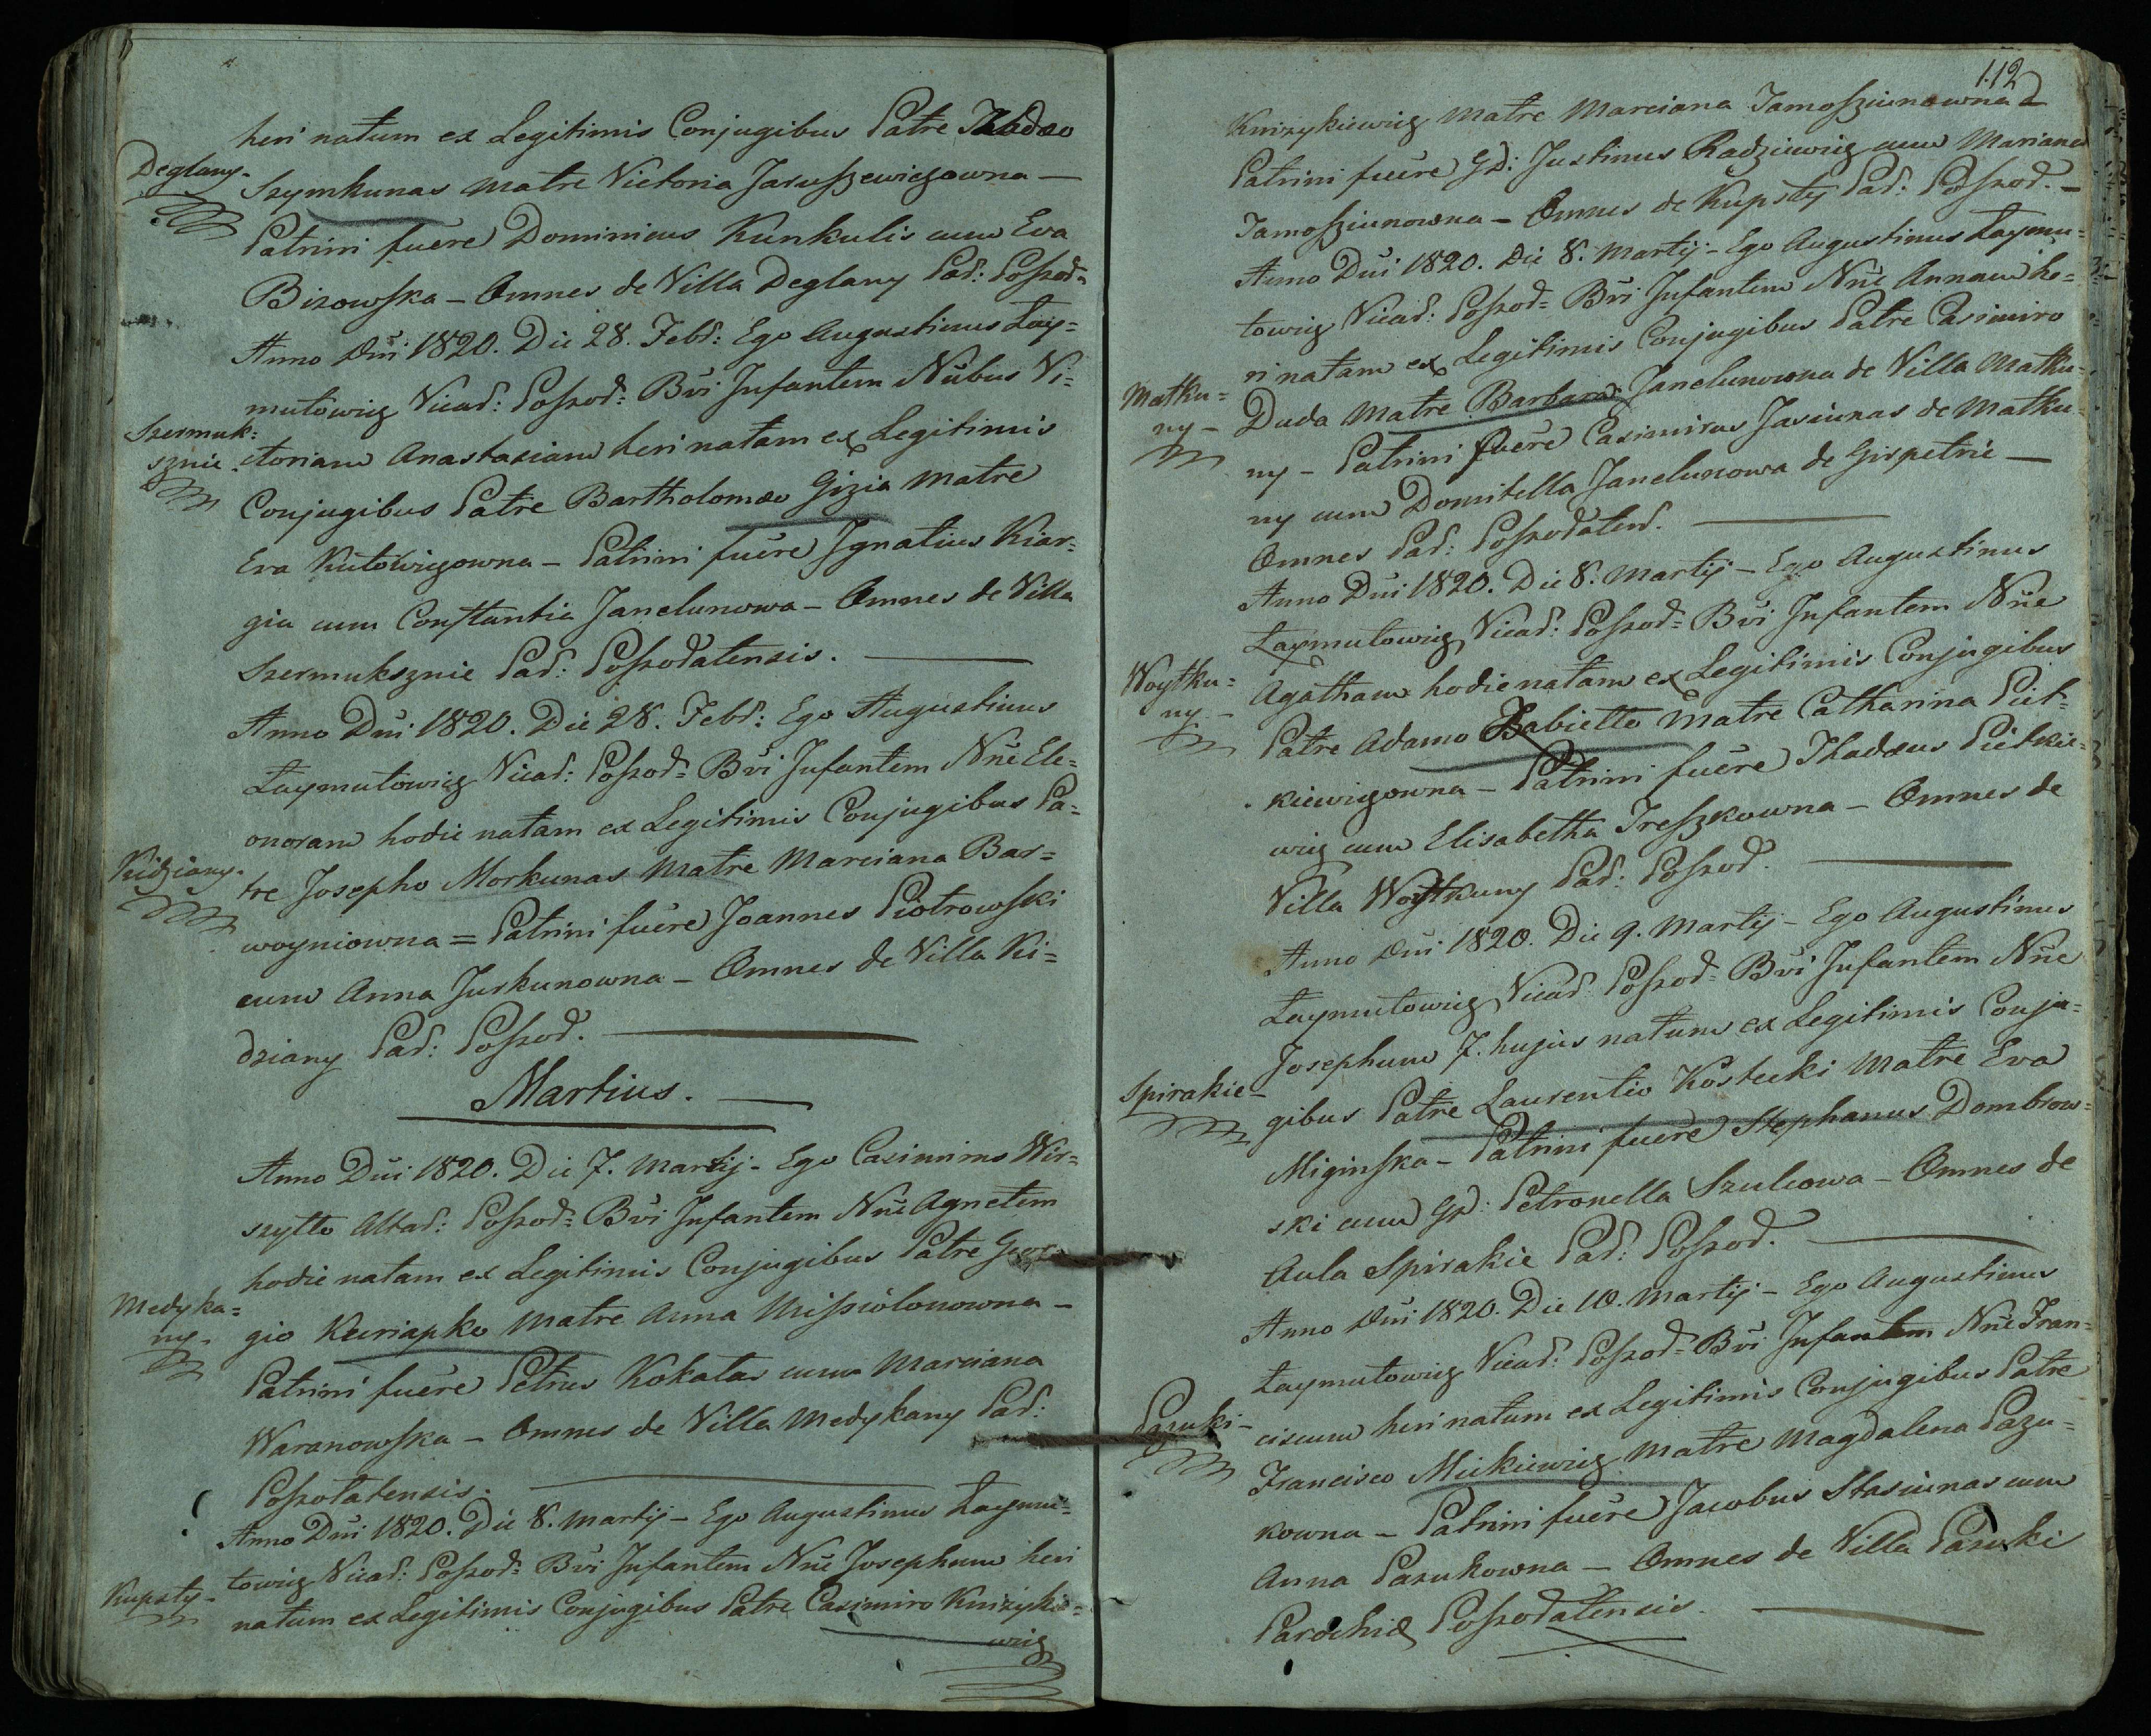 heri natum ex Legitimis Conjugibus Patre Thadæo
Deglany. Szymkunas Matre Victoria Jaruszewiczowna —
Patrini fuere Dominicus Kunkulis cum Eva
Bizowska – Omnes de Villa Deglany Par: Poszod=
Anno Dni 1820. Die 28. Febr: Ego Augustinus Łay=
mutowicz Vicar: Poszod= Bvi Infantem Nnibus Vi=
Szermuk=
sznie. ctoriam Anastasiam heri natam ex Legitimis
Conjugibus Patre Bartholomæo Gizia Matre
Eva Kutowiczowna – Patrini fuere Ignatius Kiar=
gia cum Constantia Janelunowa – Omnes de Villa
Szermuksznie Par: Poszodatensis. —
Anno Dni 1820. Die 28. Febr: Ego Augustinus
Łaymutowicz Vicar: Poszod= Bvi Infantem Nne Ele=
onoram hodie natam ex Legitimis Conjugibus Pa=
Kidziany. tre Josepho Morkunas Matre Marciana Bar=
woyniowna = Patrini fuere Joannes Piotrowski
cum Anna Jurkunowna – Omnes de Villa Ki=
dziany Par: Poszod. —
Martius. —
Anno Dni 1820. Die 7. Martij – Ego Casimirus Wir=
szyłło Altar: Poszod= Bvi Infantem Nne Agnetem
hodie natam ex Legitimis Conjugibus Patre Geor=
Medyka=
ny – gio Kuriapko Matre Anna Missiolonowna –
Patrini fuere Petrus Kokatas cum Marciana
Waranowska – Omnes de Villa Medykany Par:
Poszotatensis. —
Anno Dni 1820. Die 8. Martij – Ego Augustinus Łaymu=
towicz Vicar: Poszod= Bvi Infantem Nne Josephum heri
Kupsty – natum ex Legitimis Conjugibus Patre Casimiro Knizykie=
wicz
112
Knizykiewicz Matre Marciana Jamosziunowna
Patrini fuere GD: Justinus Radziewicz cum Mariana
Jamosziunowna – Omnes de Kupsty Par: Poszod. –
Anno Dni 1820. Die 8. Martij – Ego Augustinus Łaymu=
towicz Vicar: Poszod= Bvi Infantem Nne Annam he=
ri natam ex Legitimis Conjugibus Patre Casimiro
Matku=
ny – Duda Matre Barbara Janelunowna de Villa Matku=
ny – Patrini fuere Casimirus Jasiunas de Matku=
ny cum Domitella Janelunowa de Girpetrie —
Omnes Par: Poszodaten. —
Anno Dni 1820. Die 8. Martij – Ego Augustinus
Łaymutowicz Vicar: Poszod= Bvi Infantem Nne
Woytku=
ny – Agatham hodie natam ex Legitimis Conjugibus
Patre Adamo Zabiełło Matre Catharina Piet=
kiewiczowna – Patrini fuere Thadæus Pietkie=
wicz cum Elisabetha Treszkowna – Omnes de
Villa Woytkuny Par: Poszod. —
Anno Dni 1820. Die 9. Martij – Ego Augustinus
Łaymutowicz Vicar: Poszod= Bvi Infantem Nne
Josephum 7. hujus natum ex Legitimis Conju=
Spirakie – gibus Patre Laurentio Kostecki Matre Eva
Miginska – Patrini fuere Stephanus Dombrow=
ski cum GD: Petronella Szulcowa – Omnes de
Aula Spirakie Par: Poszod. —
Anno Dni 1820. Die 10. Martij – Ego Augustinus
Łaymutowicz Vicar: Poszod= Bvi Infantem Nne Fran=
Pazuki – ciscum heri natum ex Legitimis Conjugibus Patre
Francisco Mickiewicz Matre Magdalena Pazu=
kowna – Patrini fuere Jacobus Stasiunas cum
Anna Pazukowna – Omnes de Villa Pazuki
Parochiæ Poszodatensis. —